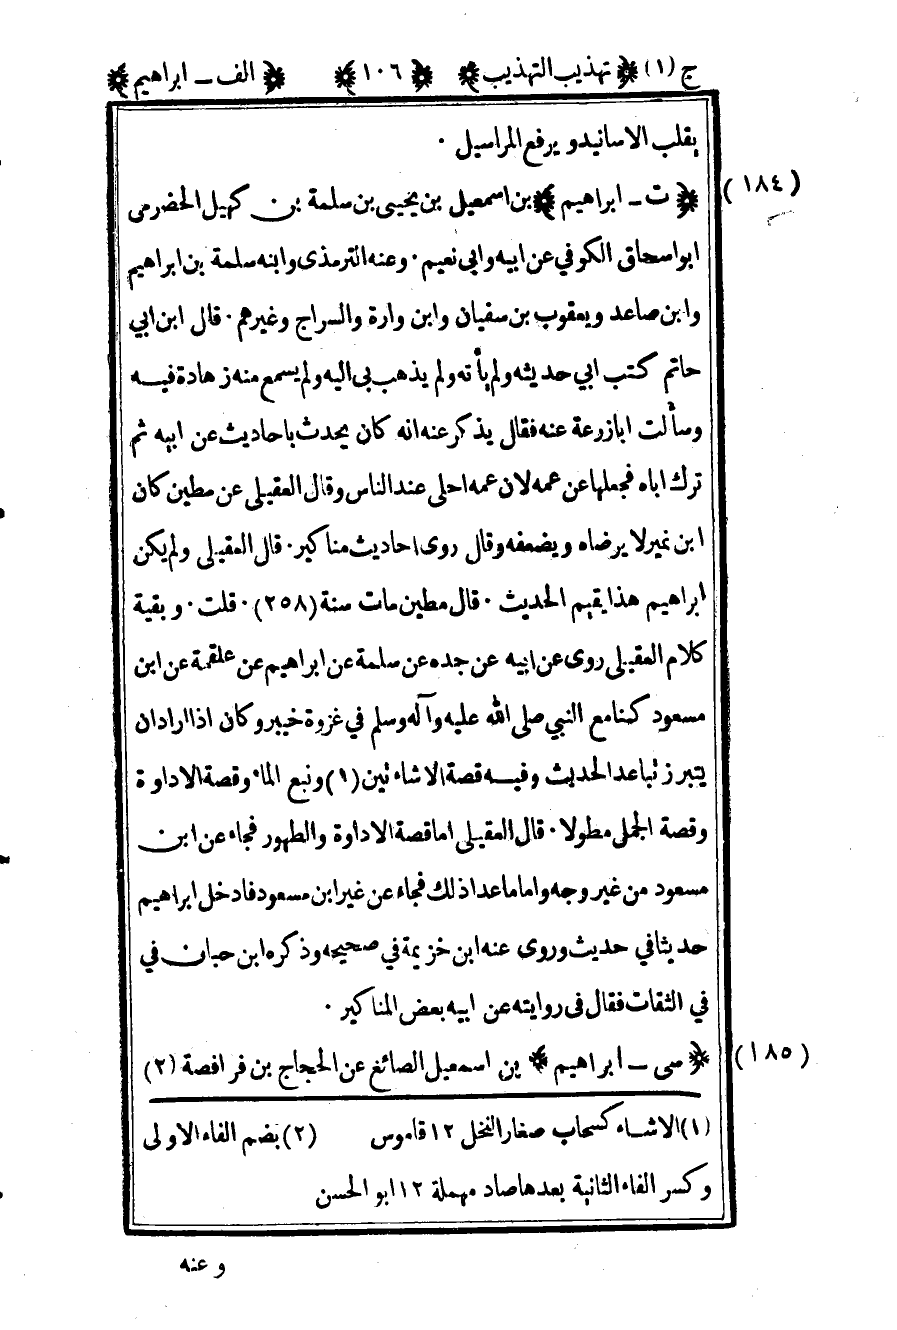 ج (١) ﴿ تهذيب التهذيب ﴾ ﴿ ١٠٦ ﴾ ﴿ الف ـ ابراهيم ﴾
يقلب الاسانيد و يرفع المراسيل ٠
(١٨٤) ﴿ ت ـ ابراهيم ﴾ بن اسمعيل بن يحيى بن سلمة بن كهيل الحضرمى
ابو اسحاق الكوفي عن ابيه وابي نعيم ٠ وعنه الترمذى وابنه سلمة بن ابراهيم
وابن صاعد ويعقوب بن سفيان وابن وارة والسراج وغيرهم ٠ قال ابن ابي
حاتم كتب ابي حديثه ولم يأته ولم يذهب بي اليه ولم يسمع منه زهادة فيه
وسألت ابا زرعة عنه فقال يذكر عنه انه كان يحدث باحاديث عن ابيه ثم
ترك اباه فجعلها عن عمه لان عمه احلى عند الناس وقال العقيلى عن مطين كان
ابن نمير لا يرضاه ويضعفه وقال روى احاديث مناكير ٠ قال العقيلى ولم يكن
ابراهيم هذا يقيم الحديث ٠ قال مطين مات سنة (٢٥٨) ٠ قلت ٠ وبقية
كلام العقيلى روى عن ابيه عن جده عن سلمة عن ابراهيم عن علقمة عن ابن
مسعود كنا مع النبي صلى الله عليه وآله وسلم في غزوة خيبر وكان اذا اراد ان
يتبرز تباعد الحديث وفيه قصة الاشاءتين (١) ونبع الماء وقصة الاداوة
وقصة الجمل مطولا ٠ قال العقيلى اما قصة الاداوة والطهور فجاء عن ابن
مسعود من غير وجه واما ما عدا ذلك فجاء عن غير ابن مسعود فادخل ابراهيم
حديثا في حديث وروى عنه ابن خزيمة في صحيحه وذكره ابن حبان في
في الثقات فقال فى روايته عن ابيه بعض المناكير ٠
(١٨٥) ﴿ سى ـ ابراهيم ﴾ بن اسمعيل الصائغ عن الحجاج بن فرافصة (٢)
(١) الاشاء كسحاب صغار النخل ١٢ قاموس (٢) بضم الفاء الاولى
وكسر الفاء الثانية بعدها صاد مهملة ١٢ ابو الحسن
وعنه